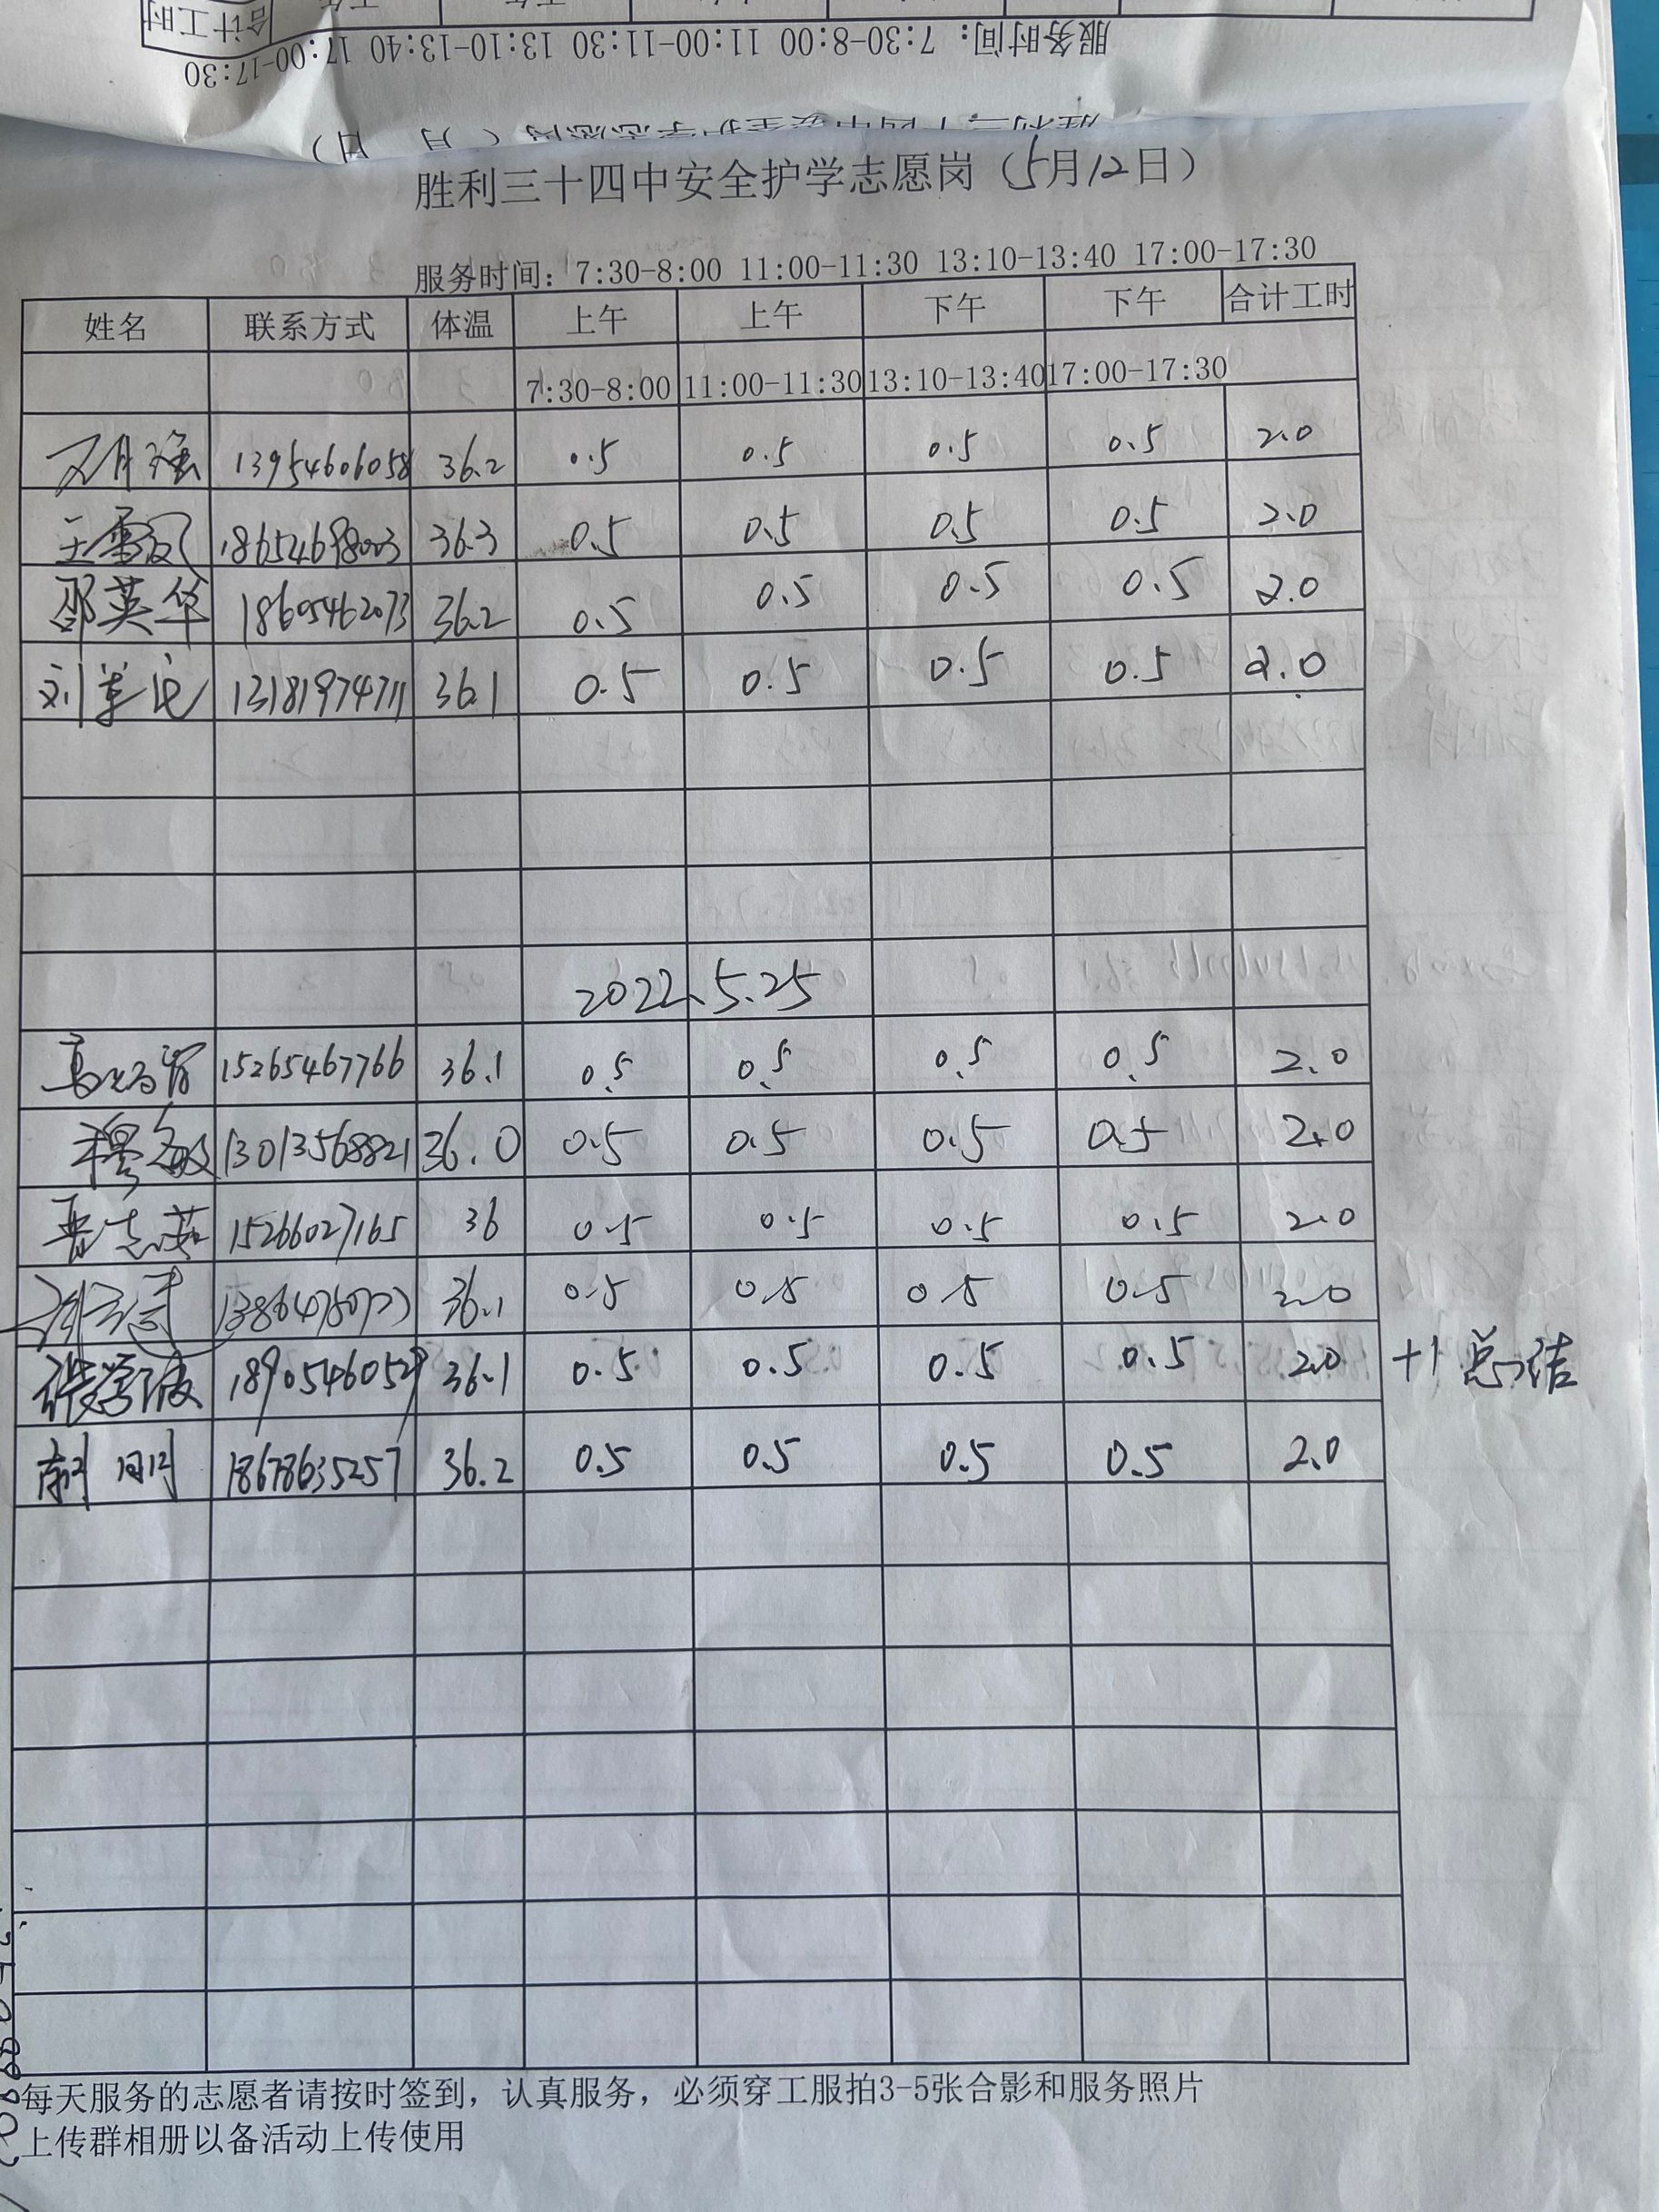 合计工时
服务时间: 7:30-8:00 11:00-11:30 13:10-13:40 17:00-17:30
胜利三十四中安全护学志愿岗（ 月 日）
胜利三十四中安全护学志愿岗（5月12日）
服务时间: 7:30-8:00 11:00-11:30 13:10-13:40 17:00-17:30
姓名 联系方式 体温 上午 上午 下午 下午 合计工时
7:30-8:00 11:00-11:30 13:10-13:40 17:00-17:30
13954606058 36.2 0.5 0.5 0.5 0.5 2.0
王雪 18654698003 36.3 0.5 0.5 0.5 0.5 2.0
邵英华 18605462073 36.2 0.5 0.5 0.5 0.5 2.0
刘 13181974711 36.1 0.5 0.5 0.5 0.5 2.0
2022.5.25
15265467766 36.1 0.5 0.5 0.5 0.5 2.0
穆敏 13013568821 36.0 0.5 0.5 0.5 0.5 2.0
志英 15266027165 36 0.5 0.5 0.5 0.5 2.0
36.1 0.5 0.5 0.5 0.5 2.0
张学波 18905460529 36.1 0.5 0.5 0.5 0.5 2.0 +1 总结
18678635257 36.2 0.5 0.5 0.5 0.5 2.0
每天服务的志愿者请按时签到，认真服务，必须穿工服拍3-5张合影和服务照片
上传群相册以备活动上传使用